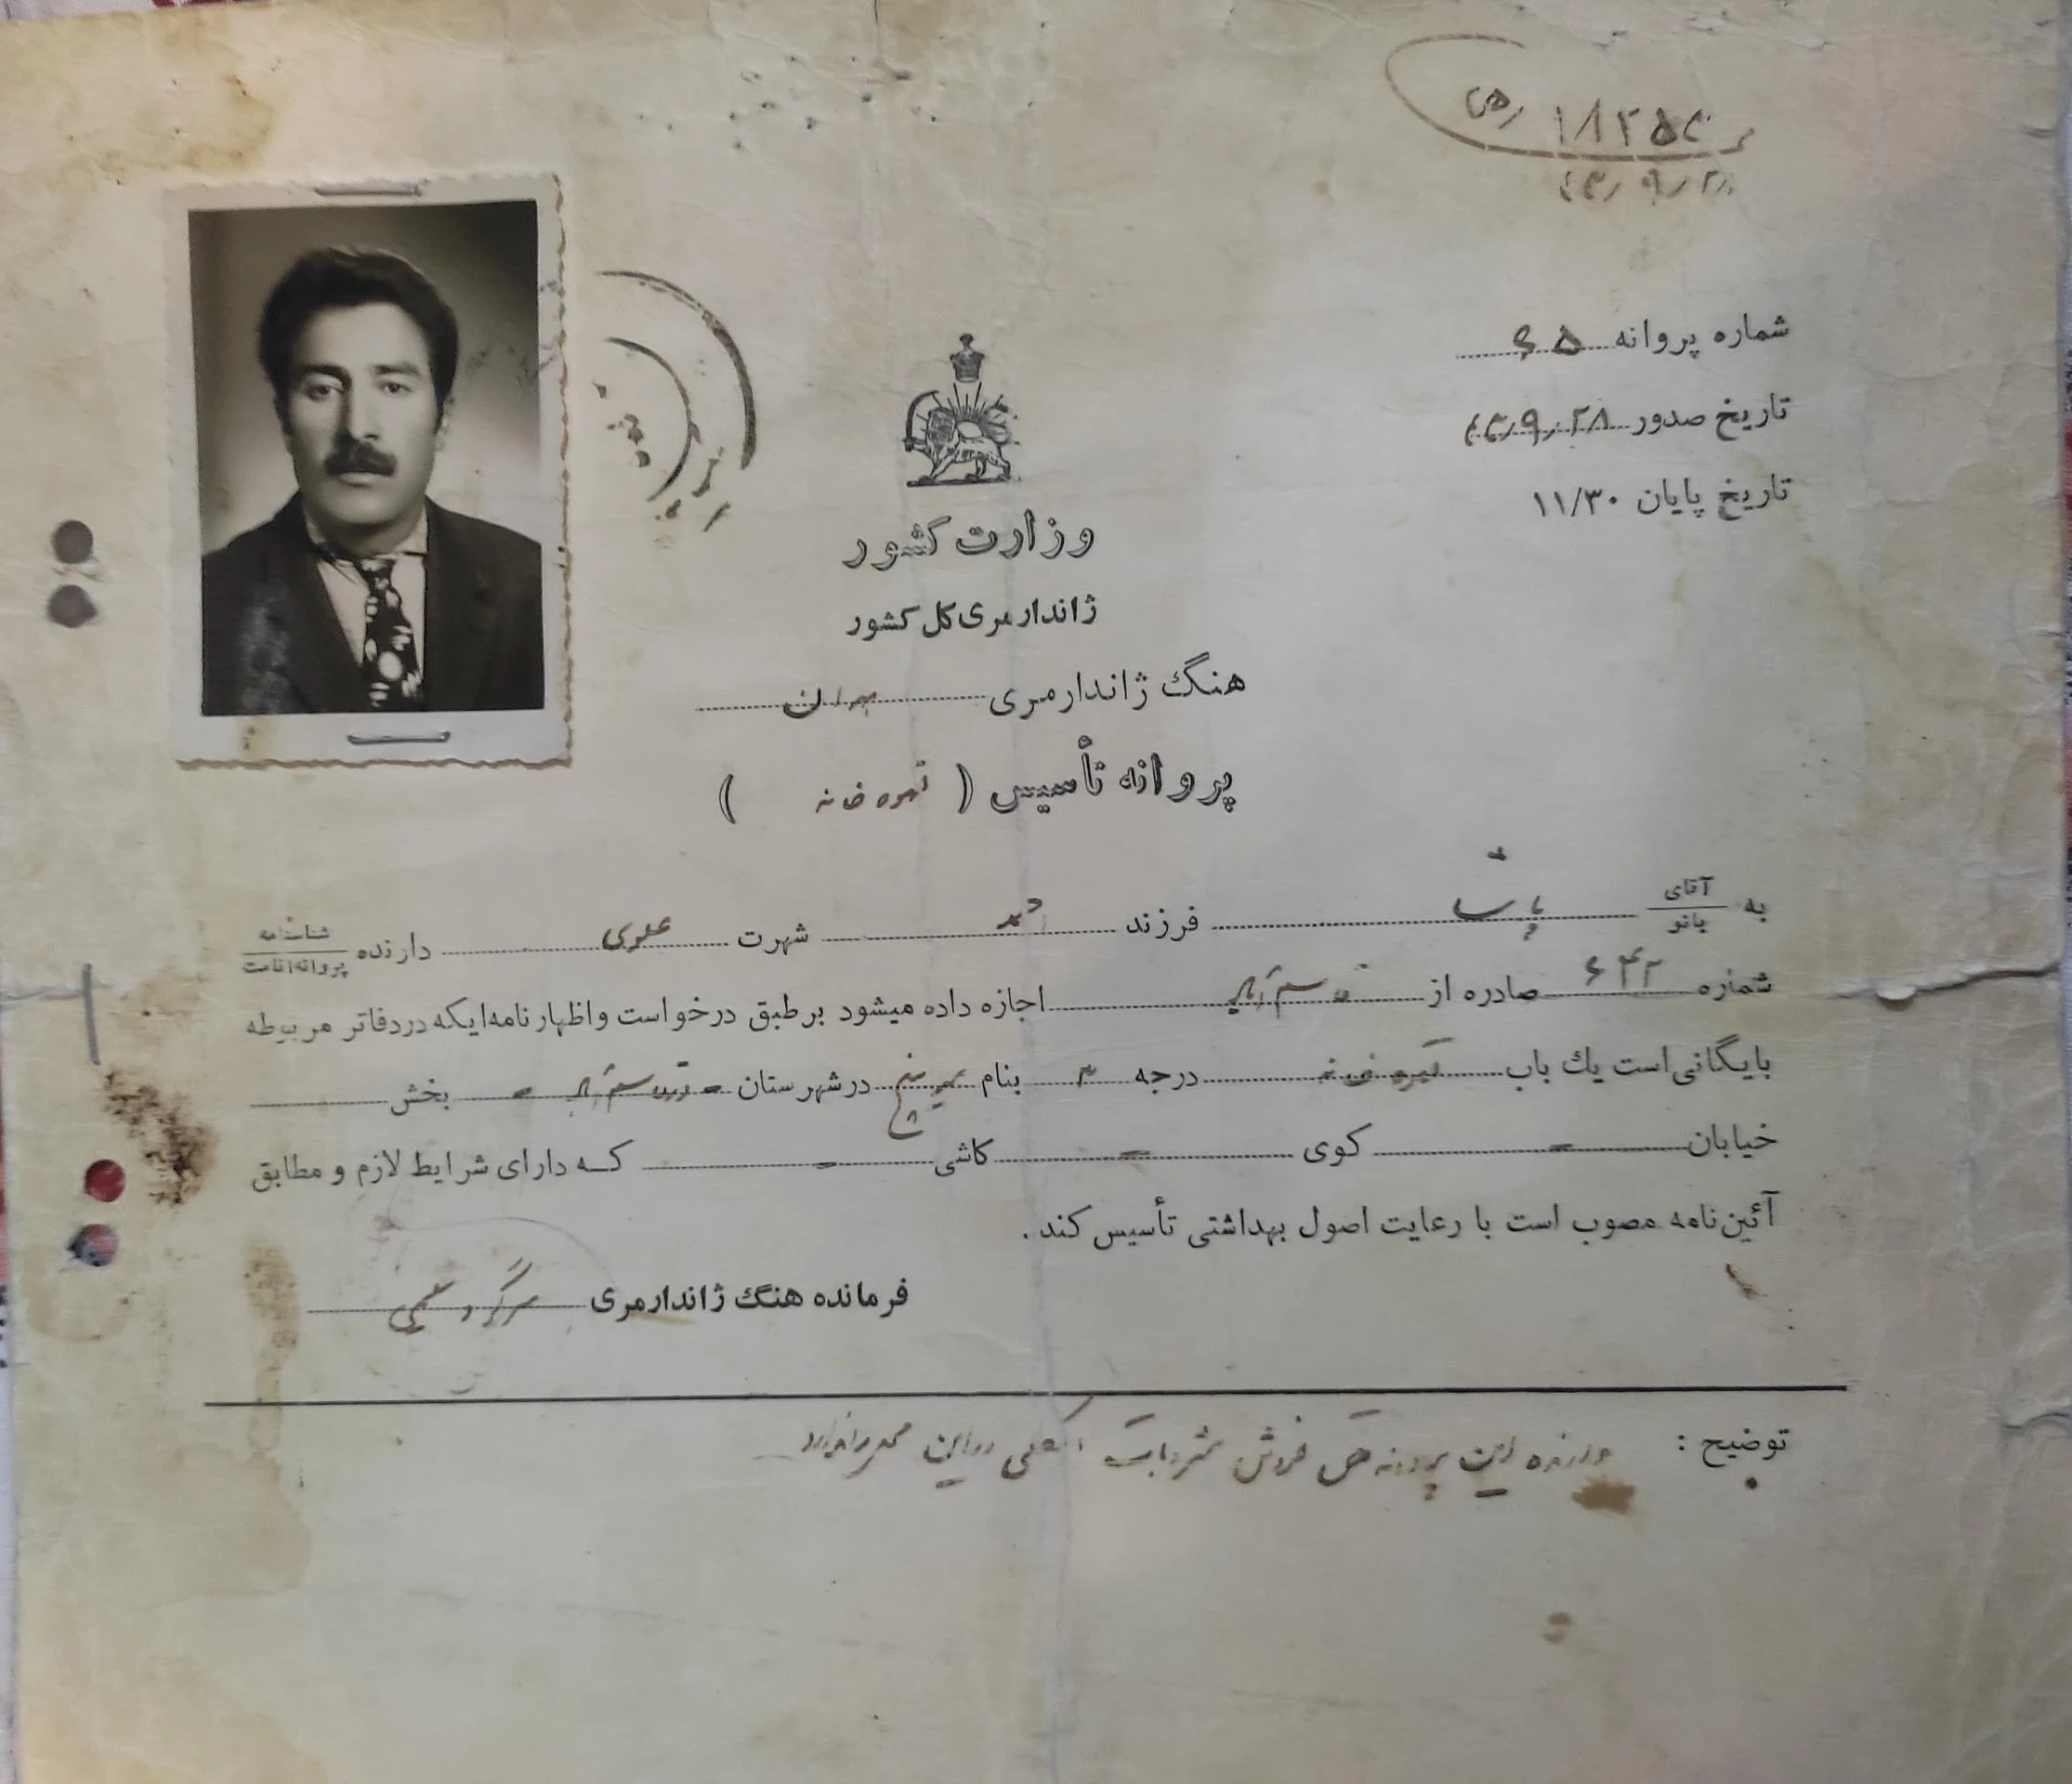 ۱۸۲۵۴
۴۳٫۹٫۲۸
شماره پروانه ۶۵
تاریخ صدور ۴۳٫۹٫۲۸
تاریخ پایان ۱۱/۳۰
وزارت کشور
ژاندارمری کل کشور
هنگ ژاندارمری
پروانه تأسیس ( قهوه خانه )
به آقای بانو فرزند شهرت علوی دارنده شناسنامه پروانه اقامت
شماره ۶۴۲ صادره از اجازه داده میشود بر طبق درخواست و اظهارنامه‌ایکه در دفاتر مربوطه
بایگانی است یك باب قهوه خانه درجه ۳ بنام در شهرستان - - بخش
خیابان - کوی - کاشی - که دارای شرایط لازم و مطابق
آئین‌نامه مصوب است با رعایت اصول بهداشتی تأسیس کند .
فرمانده هنگ ژاندارمری سرگرد
توضیح : دارنده این پروانه حق فروش مشروبات الکلی در این محل را ندارد